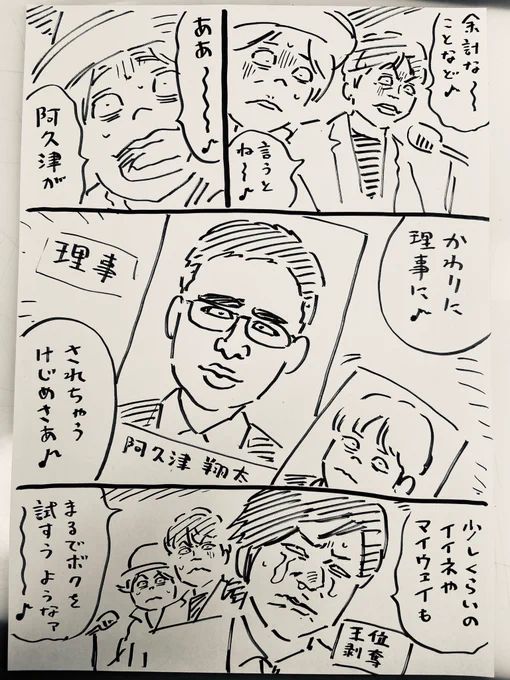 余計な〜
ことなど♪
言うと
ね〜♪
ああ
〜〜♪
阿久津が
かわりに
理事に♪
理事
阿久津 翔太
されちゃう
けじめさあ♪
少しくらいの
イイネや
マイウェイも
王位
剥奪
まるでボクを
試すうような?
〜〜♪